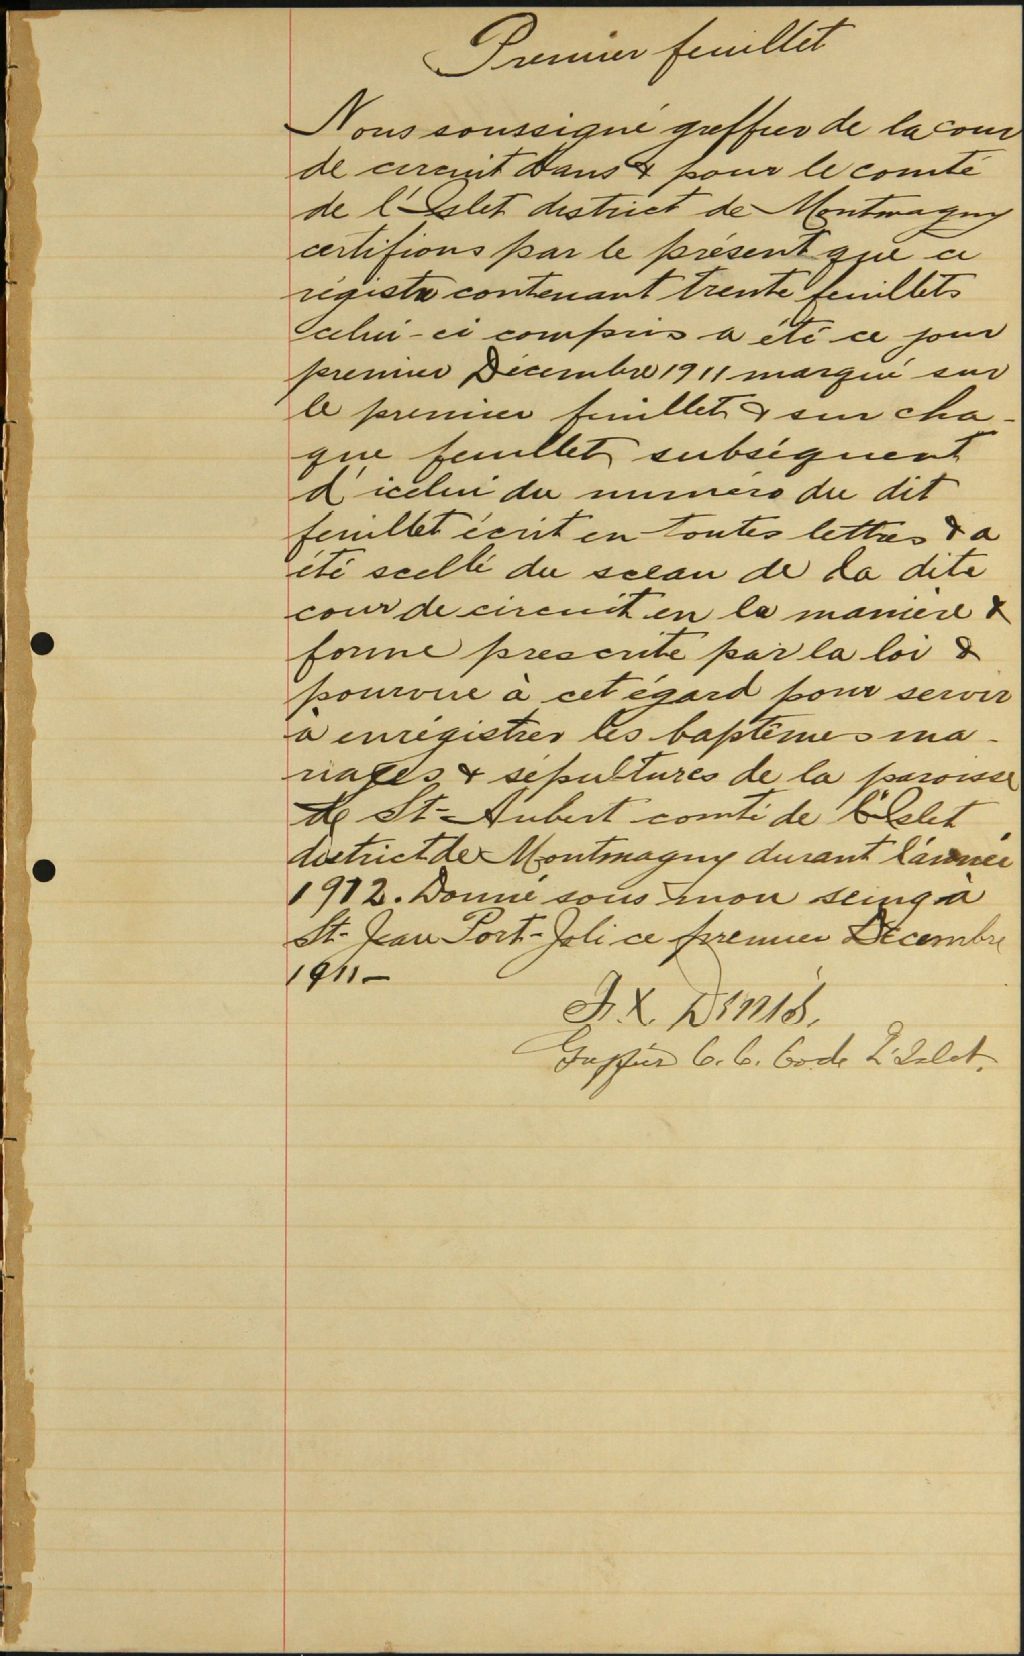 Premier feuillet
Nous soussigné greffier de la cour
de circuit dans & pour le comté
de l'Islet district de Montmagny
certifions par le présent que ce
régistre contenant trente feuillets
celui-ci compris a été ce jour
premier Décembre 1911 marqué sur
le premier feuillet & sur cha-
que feuillet subséquent
d'icelui du numéro du dit
feuillet écrit en toutes lettres & a
été scellé du sceau de la dite
cour de circuit en la manière &
forme prescrite par la loi &
pourvue à cet égard pour servir
à enrégistrer les baptêmes ma-
riages & sépultures de la paroisse
de St-Aubert comté de l'Islet
district de Montmagny durant l'année
1912. Donné sous mon seing à
St-Jean Port-Joli ce premier Décembre
1911 —
F. X. Denis,
Greffier C. C. Co de L'Islet.